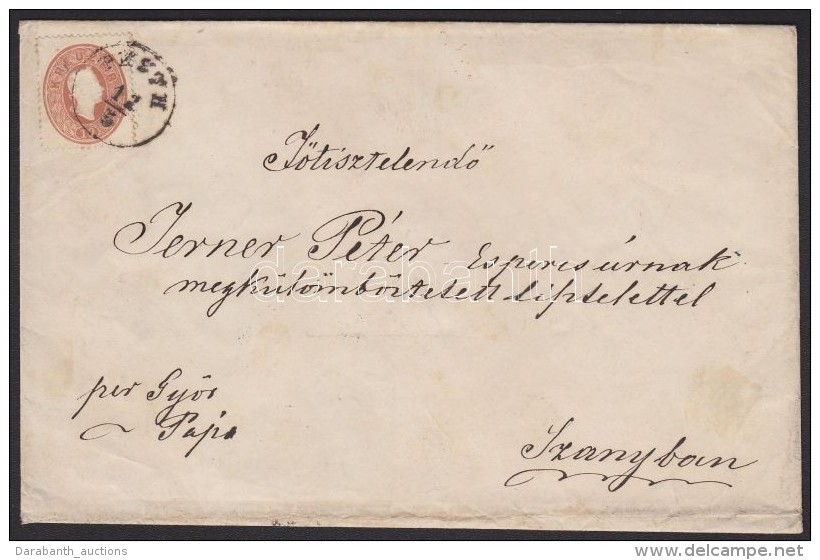 PESTH
12
Főtisztelendő
Jerner Péter Esperes úrnak
megkülömböztetett tisztelettel
per Győr
Pápa
Szanyban
darabanth
Darabanth_auctions
www.delcampe.net